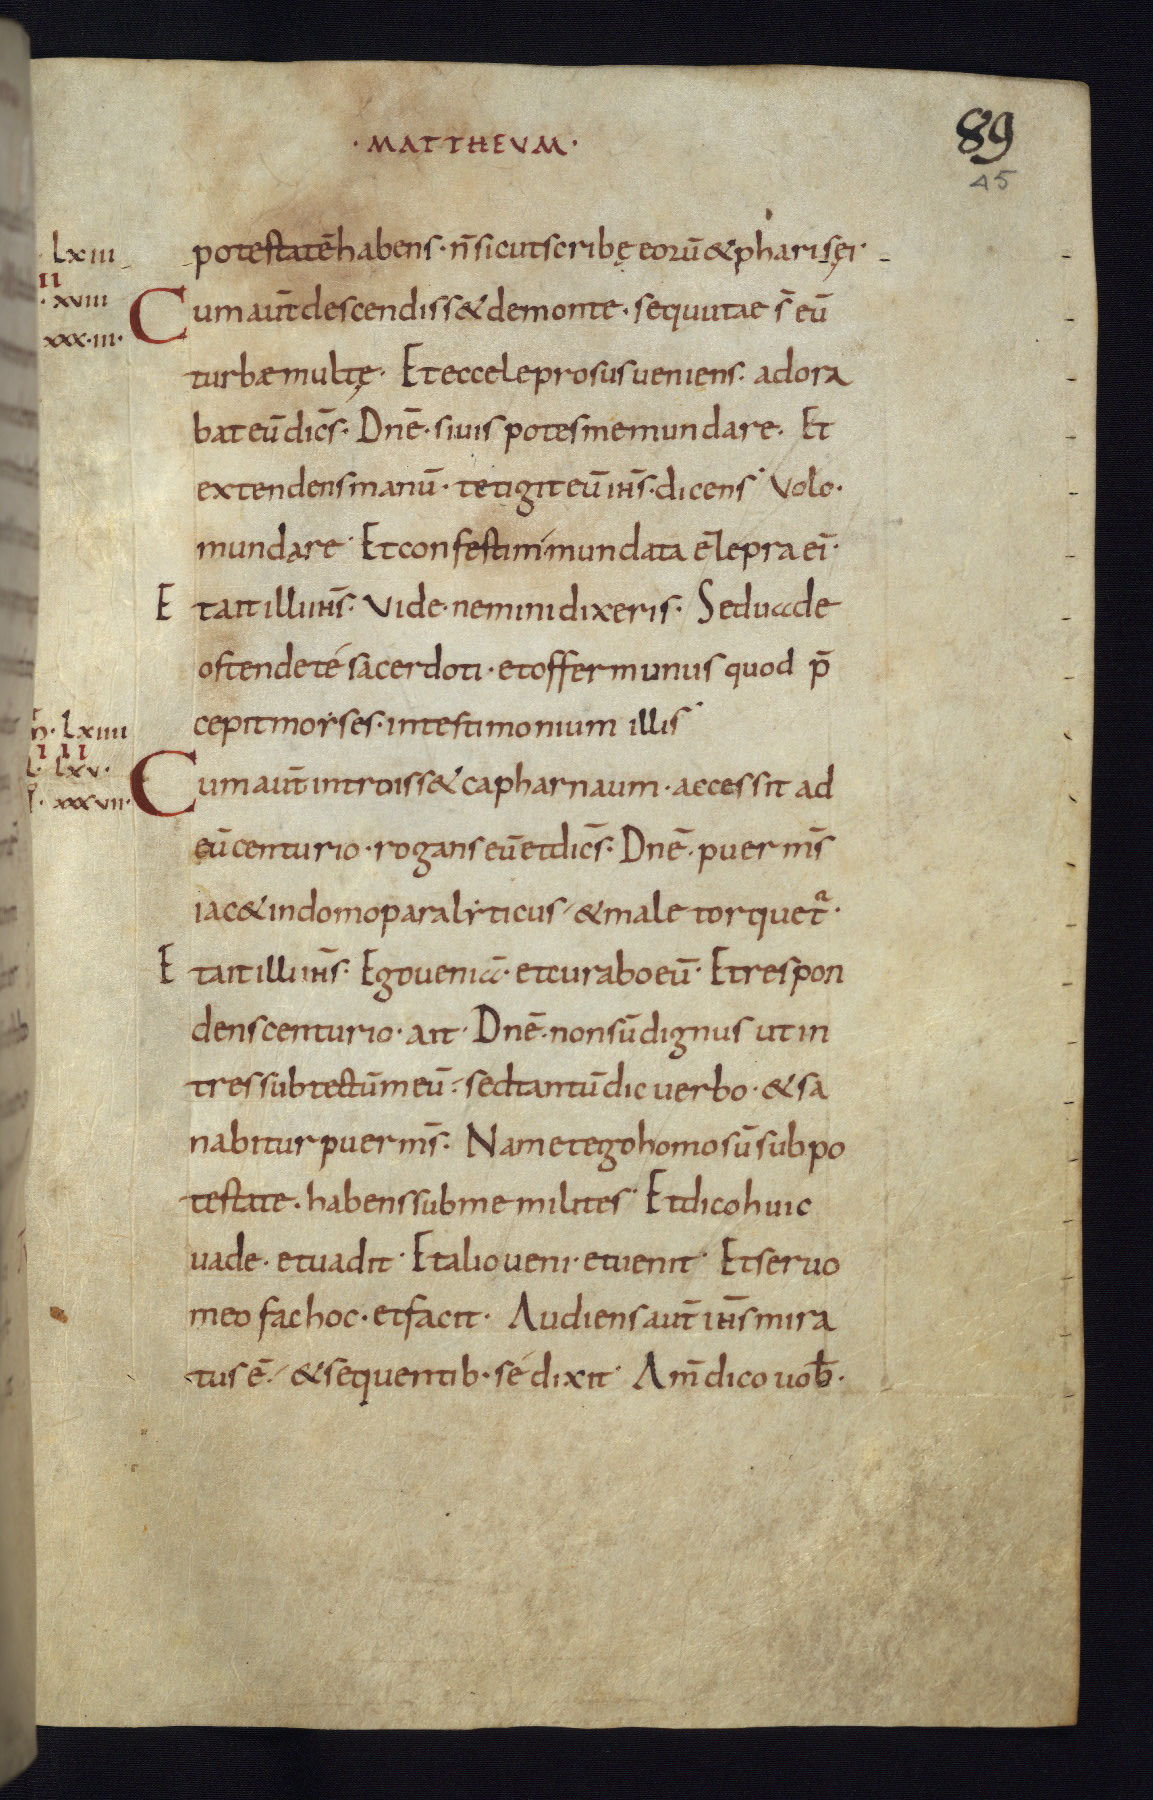 ·MATTHEVM·
89
45
Lxiii
potestatē habens· n̄ sicut scribę eorū & pharisęi·
II
·xviii
Cum aut̄ descendiss& de monte· sequutae s̄ eū
xxx·iii·
turbæ multę· Et ecce leprosus veniens· adora
bat eū dic̄s· Dn̄e· si uis potes me mundare· Et
extendens manū· tetigit eū ih̄s· dicens· Volo·
mundare· Et confestim mundata ē lepra ei̅·
Et ait illi ih̄s· Vide· nemini dixeris· Sed uade
ostende té sacerdoti· et offer munus quod p̄
cepit moẏses· in testimonium illis·
Lxiiii
I III
Lxv·
Cum aut̄ introiss& capharnaum· accessit ad
xxxvii·
eū centurio· rogans eū et dic̄s· Dn̄e· puer ms̄
iac& in domo paralẏticus· & male torquetᷓ·
Et ait illi ih̄s· Ego ueniā· et curabo eū· Et respon
dens centurio· ait· Dn̄e· non sū dignus ut in
tres sub tectū meū· sed tantū dic verbo· & sa
nabitur puer ms̄· Nam et ego homo sū sub po
testate· habens sub me milites· Et dico huic
uade· et uadit· Et alio ueni· et uenit· Et seruo
meo fac hoc· et facit· Audiens aut̄ ih̄s mira
tus ē· & sequentib· sé dixit· Am̄ dico uob̄·